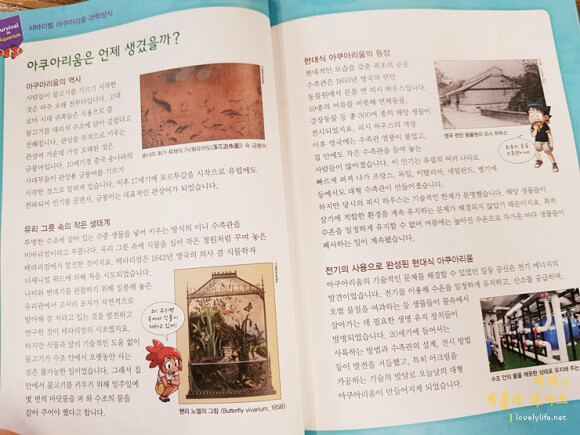 Survival in Aquarium
서바이벌 아쿠아리움 과학상식
아쿠아리움은 언제 생겼을까?
아쿠아리움의 역사
사람들이 물고기를 기르기 시작한
것은 아주 오래 전부터입니다. 고대
로마 시대 귀족들은 식용으로 쓸
물고기를 대리석 수조에 담아 길렀다고
전해집니다. 관상을 목적으로 키우는
관상어 가운데 가장 오래된 것은
금붕어입니다. 10세기경 중국 송나라의
사대부들이 관상용 금붕어를 기르기
시작한 것으로 알려져 있습니다. 이후 17세기에 포르투갈을 시작으로 유럽에도
전파되어 인기를 끌면서, 금붕어는 대표적인 관상어가 되었습니다.
송나라 화가 유채의 <낙화유어도(落花遊魚圖)> 속 금붕어
유리 그릇 속의 작은 생태계
투명한 수조에 살아 있는 수중 생물을 넣어 키우는 방식의 미니 수족관을
비바리엄이라고 부릅니다. 유리 그릇 속에 식물을 심어 작은 정원처럼 꾸며 놓은
테라리엄에서 발전한 것이지요. 테라리엄은 1842년 영국의 의사 겸 식물학자
너새니얼 워드에 의해 처음 시도되었습니다.
나비와 번데기를 관찰하기 위해 밀봉해 놓은
유리관에서 고사리 포자가 자연적으로
발아해 잘 자라고 있는 것을 발견하고
연구한 것이 테라리엄의 시초였지요.
하지만 식물과 달리 기술적인 도움 없이
물고기가 수조 안에서 오랫동안 사는
것은 불가능한 일이었습니다. 그래서 집
안에서 물고기를 키우기 위해 일주일에
몇 번씩 바닷물을 퍼 와 수조의 물을
갈아 주어야 했다고 합니다.
헨리 노엘의 그림 (Butterfly vivarium, 1858)
현대식 아쿠아리움의 등장
현대적인 모습을 갖춘 최초의 공공
수족관은 1853년 영국의 런던
동물원에서 문을 연 피시 하우스입니다.
58종의 어류를 비롯해 연체동물,
강장동물 등 총 300여 종의 해양 생물이
전시되었지요. 피시 하우스의 개장
이후 영국에는 수족관 열풍이 불었고,
집 안에도 작은 수족관을 들여 놓는
사람들이 많아졌습니다. 이 인기는 유럽의 여러 나라로
빠르게 퍼져 나가 프랑스, 독일, 이탈리아, 네덜란드, 벨기에
등에서도 대형 수족관이 만들어졌습니다.
하지만 당시의 피시 하우스는 기술적인 한계가 분명했습니다. 해양 생물들이
살기에 적합한 환경을 계속 유지하는 문제가 해결되지 않았기 때문이지요. 특히
수온을 일정하게 유지할 수 없어 여름에는 높아진 수온으로 차가운 바다 생물들이
폐사하는 일이 계속됐습니다.
영국 런던 동물원의 피시 하우스
전기의 사용으로 완성된 현대식 아쿠아리움
아쿠아리움의 기술적인 문제를 해결할 수 있었던 일등 공신은 전기 에너지의
발견이었습니다. 전기를 이용해 수온을 일정하게 유지하고, 산소를 공급하며,
오염 물질을 여과하는 등 생물들이 물속에서
살아가는 데 필요한 생명 유지 장치들이
발명되었습니다. 20세기에 들어서는
사육하는 방법과 수족관의 설계, 전시 방법
등이 발전을 거듭했고, 특히 아크릴을
가공하는 기술의 발달로 오늘날의 대형
아쿠아리움이 만들어지게 되었습니다.
수조 안의 물을 깨끗한 상태로 유지해 주는
lovelylife.net